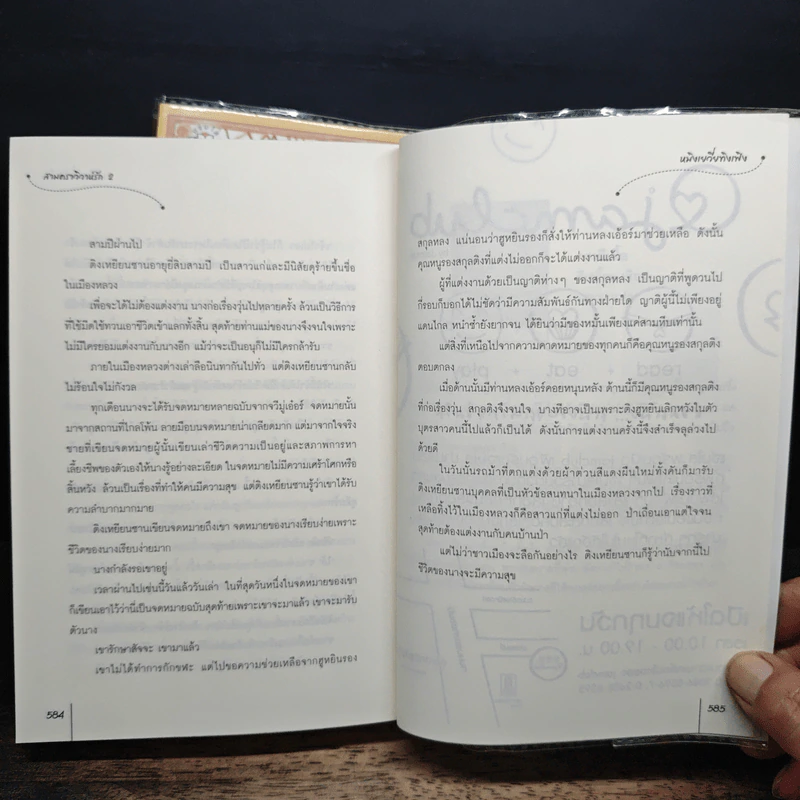 สามชะตาวิวาห์รัก 2
สามปีผ่านไป
ติงเหยียนซานอายุยี่สิบสามปี เป็นสาวแก่และมีนิสัยดุร้ายขึ้นชื่อ
ในเมืองหลวง
เพื่อจะได้ไม่ต้องแต่งงาน นางก่อเรื่องวุ่นไปหลายครั้ง ล้วนเป็นวิธีการ
ที่ใช้มีดใช้ทวนเอาชีวิตเข้าแลกทั้งสิ้น สุดท้ายท่านแม่ของนางจึงจนใจเพราะ
ไม่มีใครยอมแต่งงานกับนางอีก แม้ว่าจะเป็นอนุก็ไม่มีใครกล้ารับ
ภายในเมืองหลวงต่างเล่าลือนินทากันไปทั่ว แต่ติงเหยียนซานกลับ
ไม่ร้อนใจไม่กังวล
ทุกเดือนนางจะได้รับจดหมายหลายฉบับจากจวีมู่เอ๋อร์ จดหมายนั้น
มาจากสถานที่ไกลโพ้น ลายมือบนจดหมายน่าเกลียดมาก แต่มาจากใจจริง
ชายที่เขียนจดหมายผู้นั้นเขียนเล่าชีวิตความเป็นอยู่และสภาพการหา
เลี้ยงชีพของตัวเองให้นางรู้อย่างละเอียด ในจดหมายไม่มีความเศร้าโศกหรือ
สิ้นหวัง ล้วนเป็นเรื่องที่ทำให้คนมีความสุข แต่ติงเหยียนซานรู้ว่าเขาได้รับ
ความลำบากมากมาย
ติงเหยียนซานเขียนจดหมายถึงเขา จดหมายของนางเรียบง่ายเพราะ
ชีวิตของนางเรียบง่ายมาก
นางกำลังรอเขาอยู่
เวลาผ่านไปเช่นนี้วันแล้ววันเล่า ในที่สุดวันหนึ่งในจดหมายของเขา
ก็เขียนเอาไว้ว่านี่เป็นจดหมายฉบับสุดท้ายเพราะเขาจะมาแล้ว เขาจะมารับ
ตัวนาง
เขารักษาสัจจะ เขามาแล้ว
เขาไม่ได้ทำการกักขฬะ แต่ไปขอความช่วยเหลือจากฮูหยินรอง
584
หมิงเยวี่ยทิงเฟิง
สกุลหลง แน่นอนว่าฮูหยินรองก็สั่งให้ท่านหลงเอ้อร์มาช่วยเหลือ ดังนั้น
คุณหนูรองสกุลติงที่แต่งไม่ออกก็จะได้แต่งงานแล้ว
ผู้ที่แต่งงานด้วยเป็นญาติห่างๆ ของสกุลหลง เป็นญาติที่พูดวนไป
กี่รอบก็บอกได้ไม่ชัดว่ามีความสัมพันธ์กันทางฝ่ายใด ญาติผู้นี้ไม่เพียงอยู่
แดนไกล หนำซ้ำยังยากจน ได้ยินว่ามีของหมั้นเพียงแค่สามหีบเท่านั้น
แต่สิ่งที่เหนือไปจากความคาดหมายของทุกคนก็คือคุณหนูรองสกุลติง
ตอบตกลง
เมื่อด้านนั้นมีท่านหลงเอ้อร์คอยหนุนหลัง ด้านนี้ก็มีคุณหนูรองสกุลติง
ที่ก่อเรื่องวุ่น สกุลติงจึงจนใจ บางทีอาจเป็นเพราะติงฮูหยินเลิกหวังในตัว
บุตรสาวคนนี้ไปแล้วก็เป็นได้ ดังนั้นการแต่งงานครั้งนี้จึงสำเร็จลุล่วงไป
ด้วยดี
ในวันนั้นรถม้าที่ตกแต่งด้วยผ้าต่วนสีแดงผืนใหม่ทั้งคันก็มารับ
ติงเหยียนซานบุคคลที่เป็นหัวข้อสนทนาในเมืองหลวงจากไป เรื่องราวที่
เหลือทิ้งไว้ในเมืองหลวงก็คือสาวแก่ที่แต่งไม่ออก ป่าเถื่อนเอาแต่ใจจน
สุดท้ายต้องแต่งงานกับคนบ้านป่า
แต่ไม่ว่าชาวเมืองจะลือกันอย่างไร ติงเหยียนซานก็รู้ว่านับจากนี้ไป
ชีวิตของนางจะมีความสุข
585